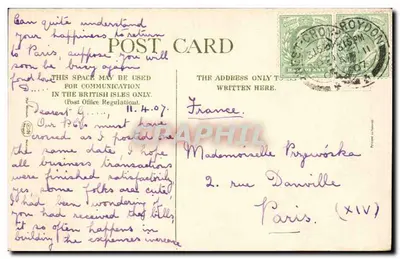 Can quite understand
your happiness to return
to Paris, suppose you will
soon be busy again
POST CARD
THIS SPACE MAY BE USED
FOR COMMUNICATION
IN THE BRITISH ISLES ONLY.
(Post Office Regulation).
THE ADDRESS ONLY TO
WRITTEN HERE.
Dearest G......, 11.4.07.
Our P.P.s must have
crossed as I posted on
the same date, I hope
all business transactions
were finished satisfactorily
yes, some folks are cute
I had been wondering if
you had received the bills,
it so often happens in
building the expenses increase
France.
Mademoiselle Przewóska
2, rue Danville
Paris.
(XIV)
CROYDON